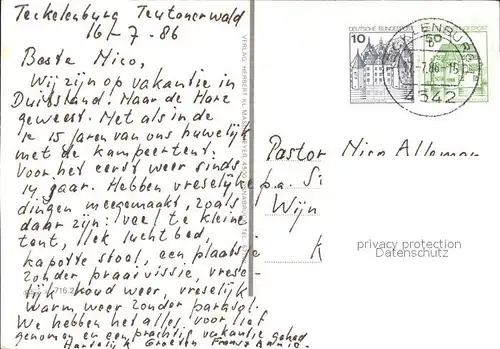 Teckelenburg Teutonerwald
16-7-86
Beste Nico,
Wij zijn op vakantie in
Duitsland! Naar de Harz
geweest. Net als in de
1e 15 jaren van ons huwelijk
met de kampeertent.
Voor het eerst weer sinds
14 jaar. Hebben vreselijke
dingen meegemaakt, zoals
daar zijn: veel te kleine
tent, llek luchtbed,
kapotte stoel, een plaatsje
zonder praaivissie, vrese-
lijk koud weer, vreselijk
warm weer zonder parasol.
We hebben het alles voor lief
genomen en een prachtig vakantie gehad
Hartelijk Groeten Frans
VERLAG: HERBERT
DEUTSCHE BUNDESPOST
10
50
4542
Pastor Nico
p.a. Si
Wijn
K
privacy protection
Datenschutz